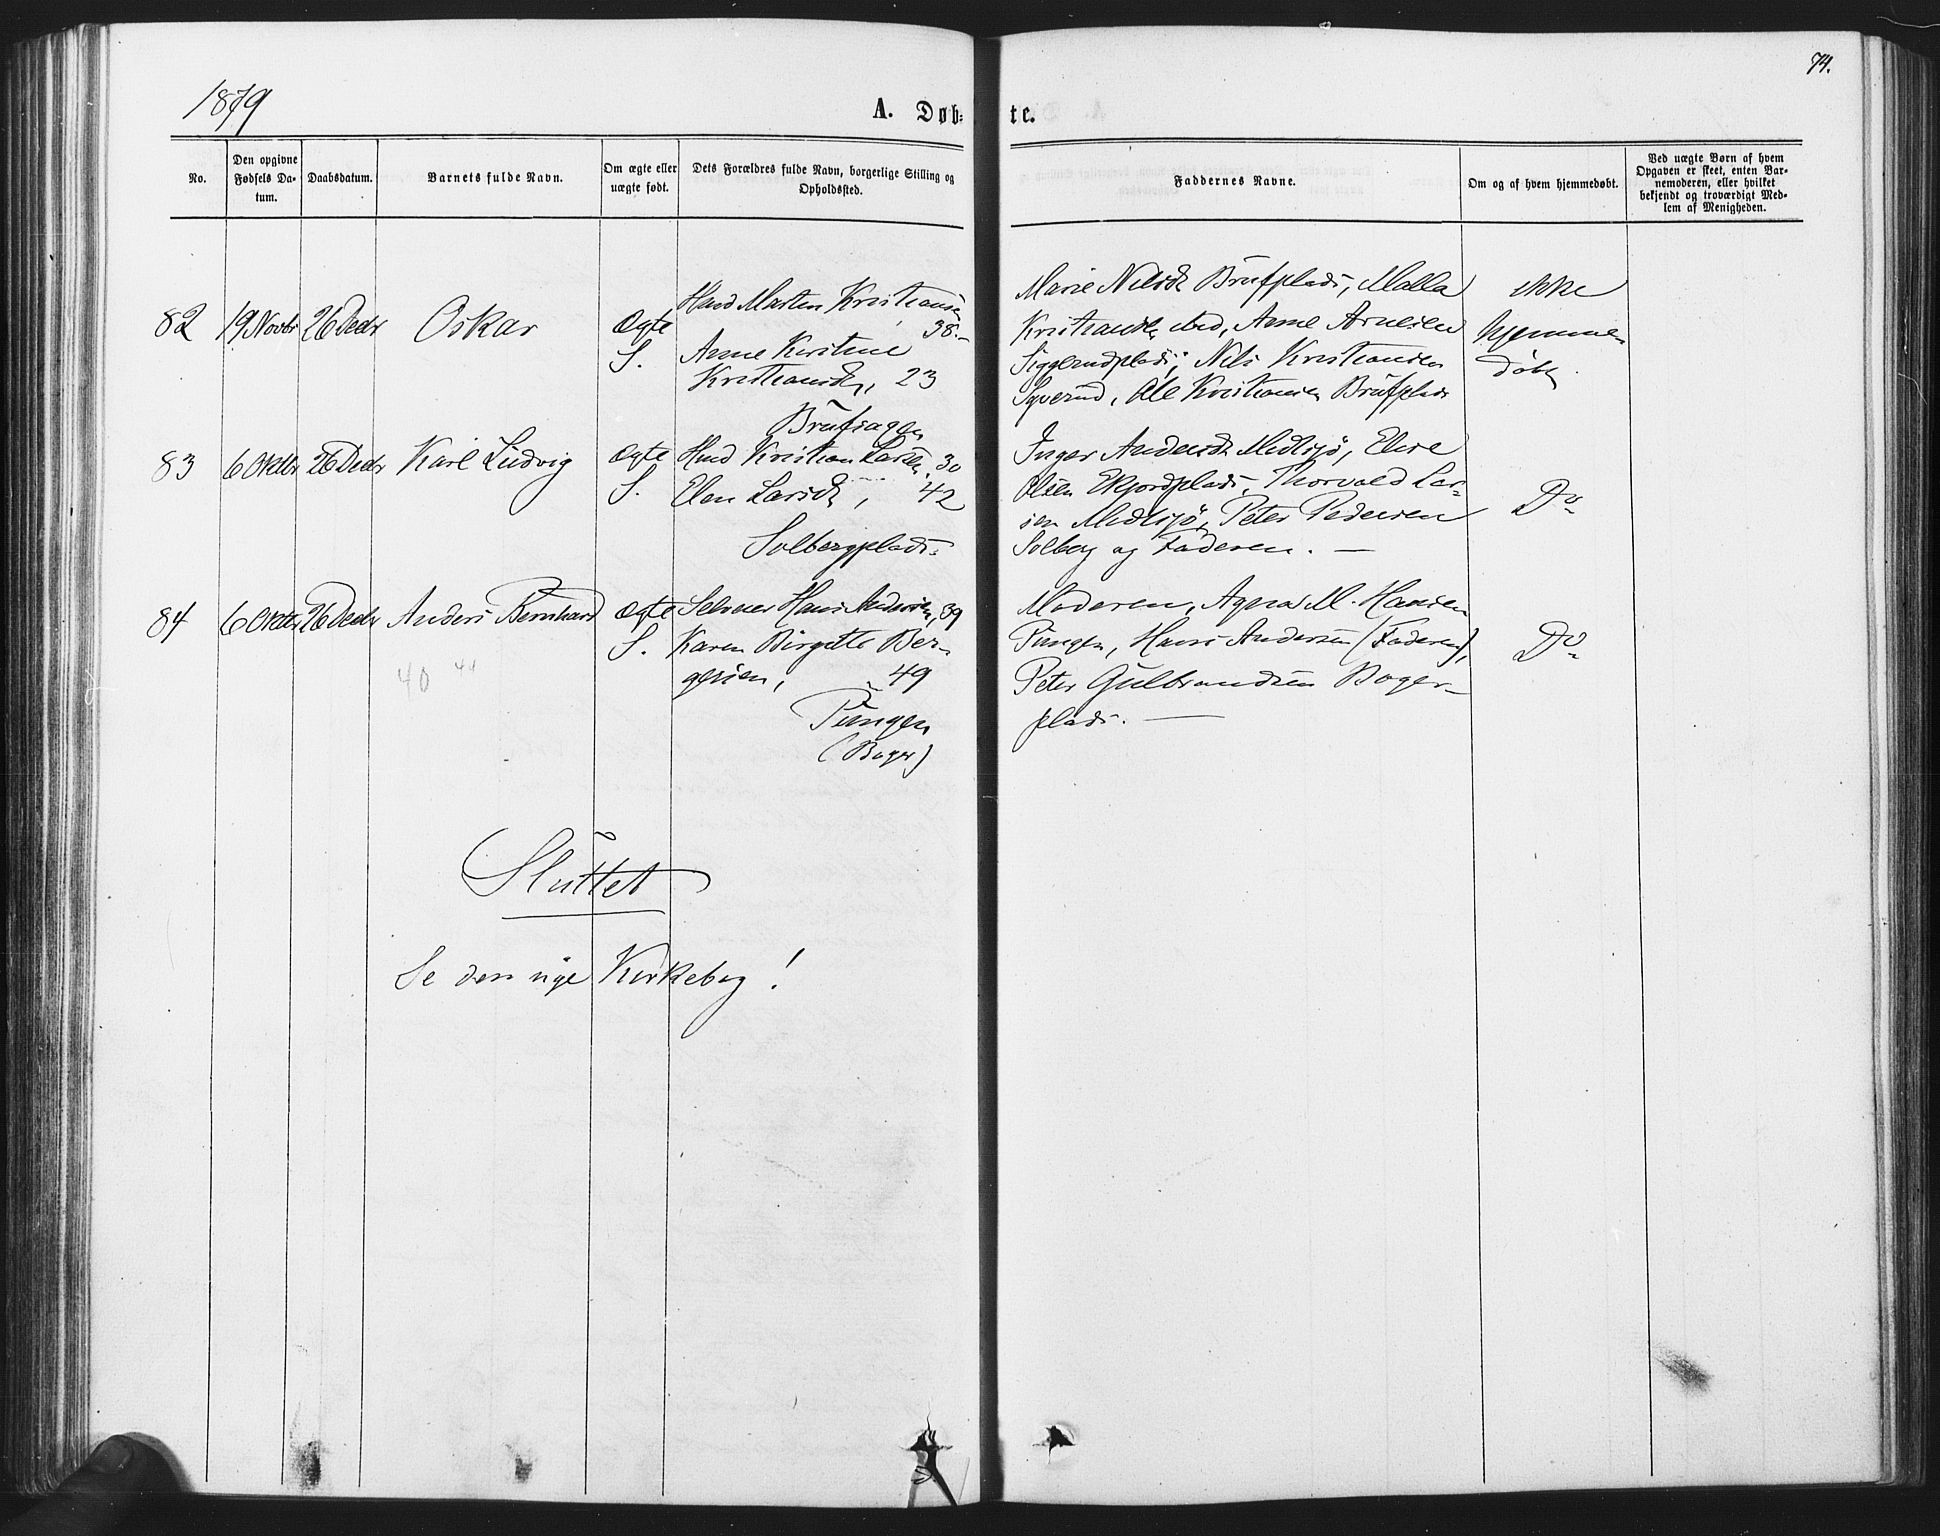 74.
1879
A. Døb-
te.
No.
Den opgivne Fødsels Da-tum.
Daabsdatum.
Barnets fulde Navn.
Om ægte eller uægte født.
Dets Forældres fulde Navn, borgerlige Stilling og Opholdssted.
Faddernes Navne.
Om og af hvem hjemmedøbt.
Ved uægte Børn af hvem Opgaven er skeet, enten Bar-nemoderen, eller hvilket bekjendt og troværdigt Med-lem af Menigheden.
82 19 Novbr 26 Decbr Oskar Ægte S.
Husmd Marten Kristiansen
38.-
Anne Kirstine
Kristiansdr, 23
Marie Nilsdr Brufplads, Malla
Kristiansdr ibid, Anne Arnesen
Siggerudplads, Nils Kristiansen
Syverud, Ole Kristiansen Brufplads
ikke
hjemme
døbt
83 6 Oktbr 26 Decbr Karl Ludvig Ægte S.
Husmd Kristian Larsen, 30
Elen Larsdr, 42
Solbergplads.
Inger Andersdr Midtsjø, Elise
Olsen Ekjordplads, Thorvald Lar-
sen Midtsjø, Peter Pedersen
Solberg og Faderen. —
Do
84 6 Oktbr 26 Decbr Anders Bernhard Ægte S.
Selveier Hans Andersen, 39
Karen Birgitte Ber-
gersen, 49
Pungen
(Boger)
Moderen, Agnes M. Hansen
Pungen, Hans Andersen (Faderen),
Peter Gulbrandsen Boger-
plads. —
Do
40 44
Sluttet
Se den nye Kirkebog!